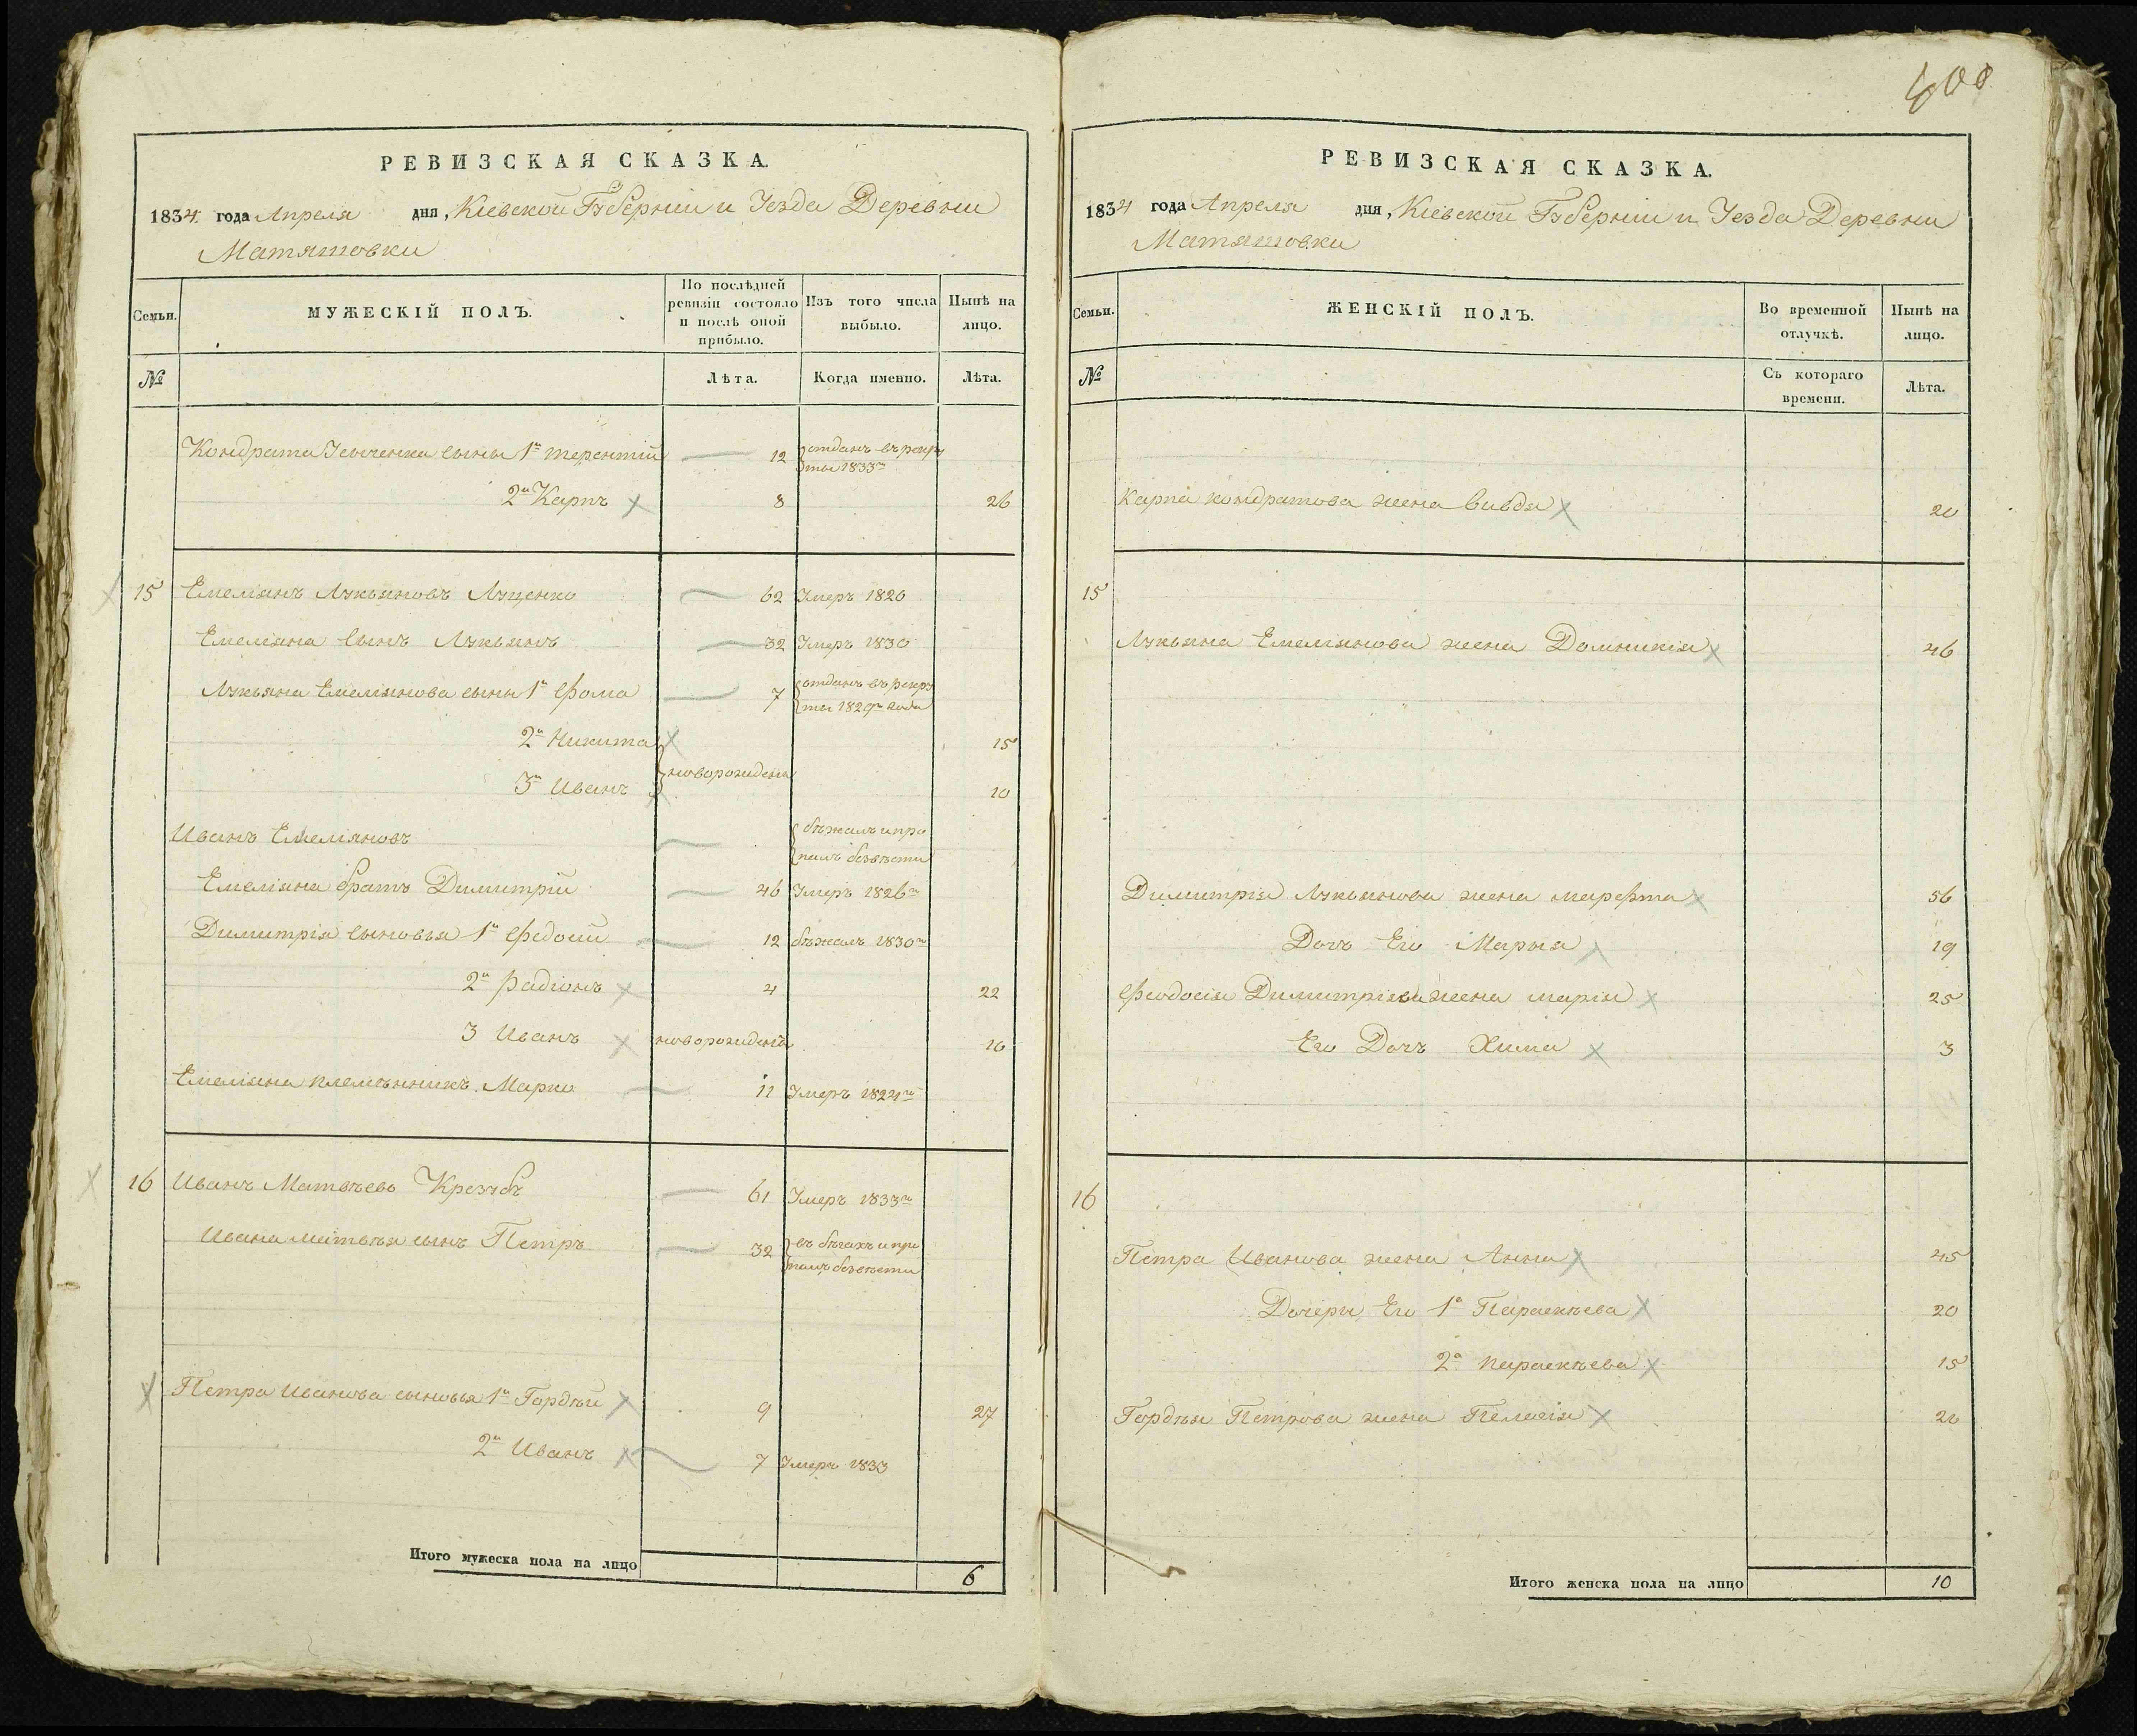 РЕВИЗСКАЯ СКАЗКА.
1834 года Апреля дня, Кіевской Губерніи и Уезда Деревни
Матятовки
Семьи. МУЖЕСКІЙ ПОЛЪ. По послѣдней ревизіи состояло и послѣ оной прибыло. Изъ того числа выбыло. Нынѣ на лицо.
№ Лѣта. Когда именно. Лѣта.
Кондрата сыны 1й терентій 12 отданъ въ рекру
ты 1833го
2й Карпъ 8 26
15 Емелянъ Лукьяновъ Луценко 62 Умеръ 1820
Емеліяна Сынъ Лукьянъ 32 Умеръ 1830
Лукьяна Емеліянова сыны 1й Фома 7 отданъ въ рекру
ты 1829го года
2й Никита 15
новорождены
3й Иванъ 10
Иванъ Емеляновъ бѣжалъ и про
палъ безвѣсти
Емеліяна братъ Димитрій 46 Умеръ 1826го
Димитрія Сыновья 1й Федосій 12 бѣжалъ 1830го
2й Радіонъ 4 22
3 Иванъ новорожденъ 16
Емеліяна племѣнникъ Марко 11 Умеръ 1824го
16 Иванъ Матвѣевъ Крезубъ 61 Умеръ 1833го
Ивана матвѣя сынъ Петръ 32 въ бѣгахъ и про
палъ безвѣсти
Петра Иванова сыновья 1й Гордѣй 9 27
2й Иванъ 7 Умеръ 1833
Итого мужеска пола на лицо 6
400
РЕВИЗСКАЯ СКАЗКА.
1834 года Апреля дня, Кіевской Губерніи и Уезда Деревни
Матятовки
Семьи. ЖЕНСКІЙ ПОЛЪ. Во временной отлучкѣ. Нынѣ на лицо.
№ Съ котораго времени. Лѣта.
Карпа кондратова жена Вивдя 20
15
Лукьяна Емеліянова жена Домникія 46
Димитрія Лукьянова жена марефта 56
Дочь Его Марья 19
Феодосія Димитріева жена марія 25
Его Дочь Хима 3
16
Петра Иванова жена Анна 45
Дочери Его 1а Параскѣева 20
2а параскѣева 15
Гордѣя Петрова жена Пелагія
Итого женска пола на лицо 10